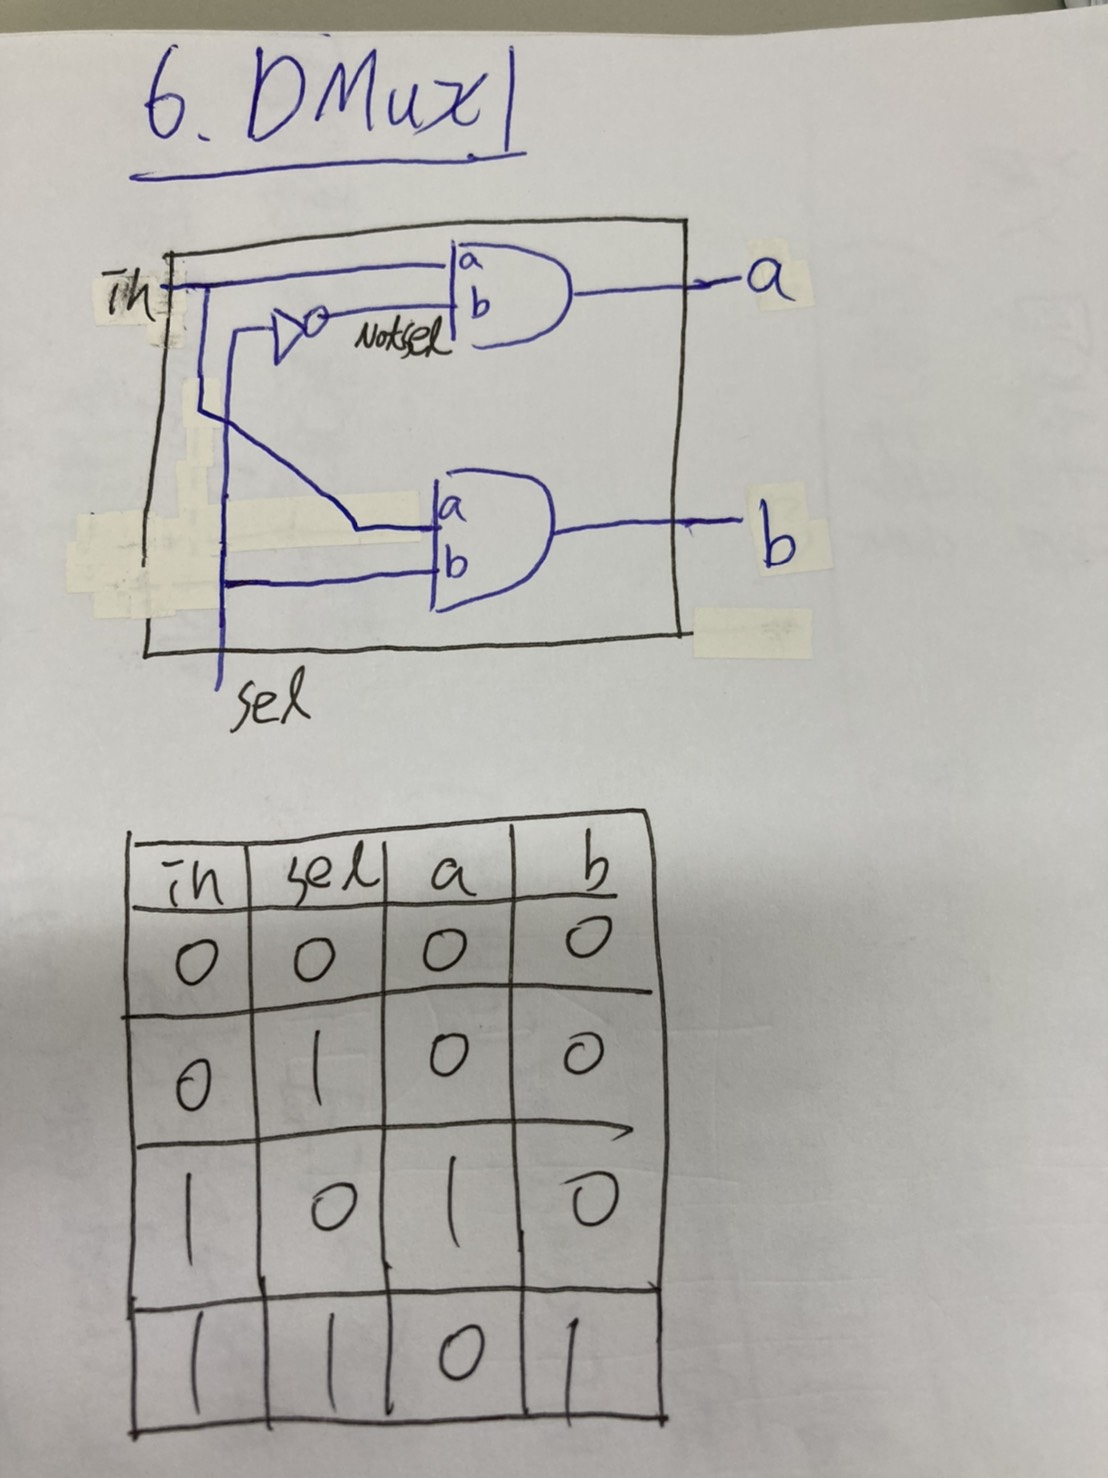 6. DMux1
in
a
b
Notsel
a
a
b
b
sel
in sel a b
0 0 0 0
0 1 0 0
1 0 1 0
1 1 0 1